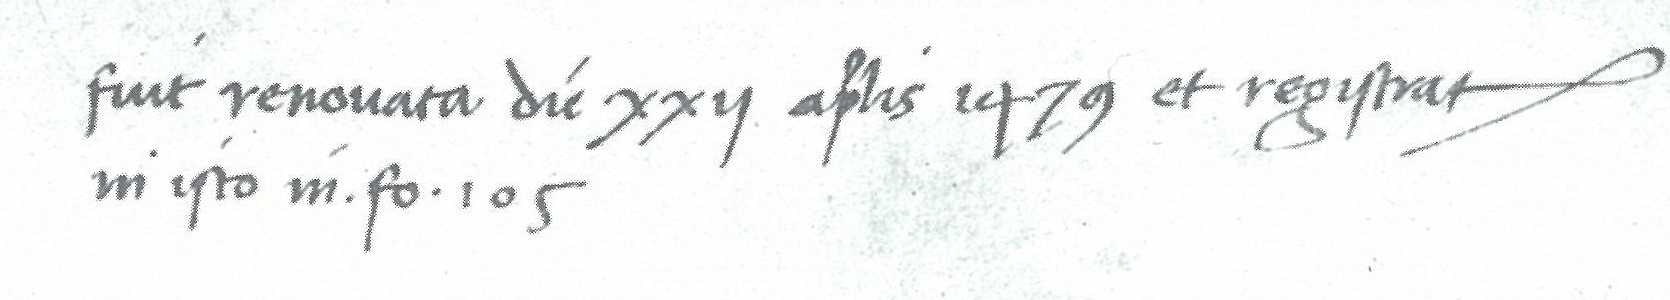 fuit renouata die xxij aplis 1479 et registrat
in isto in. fo. 105